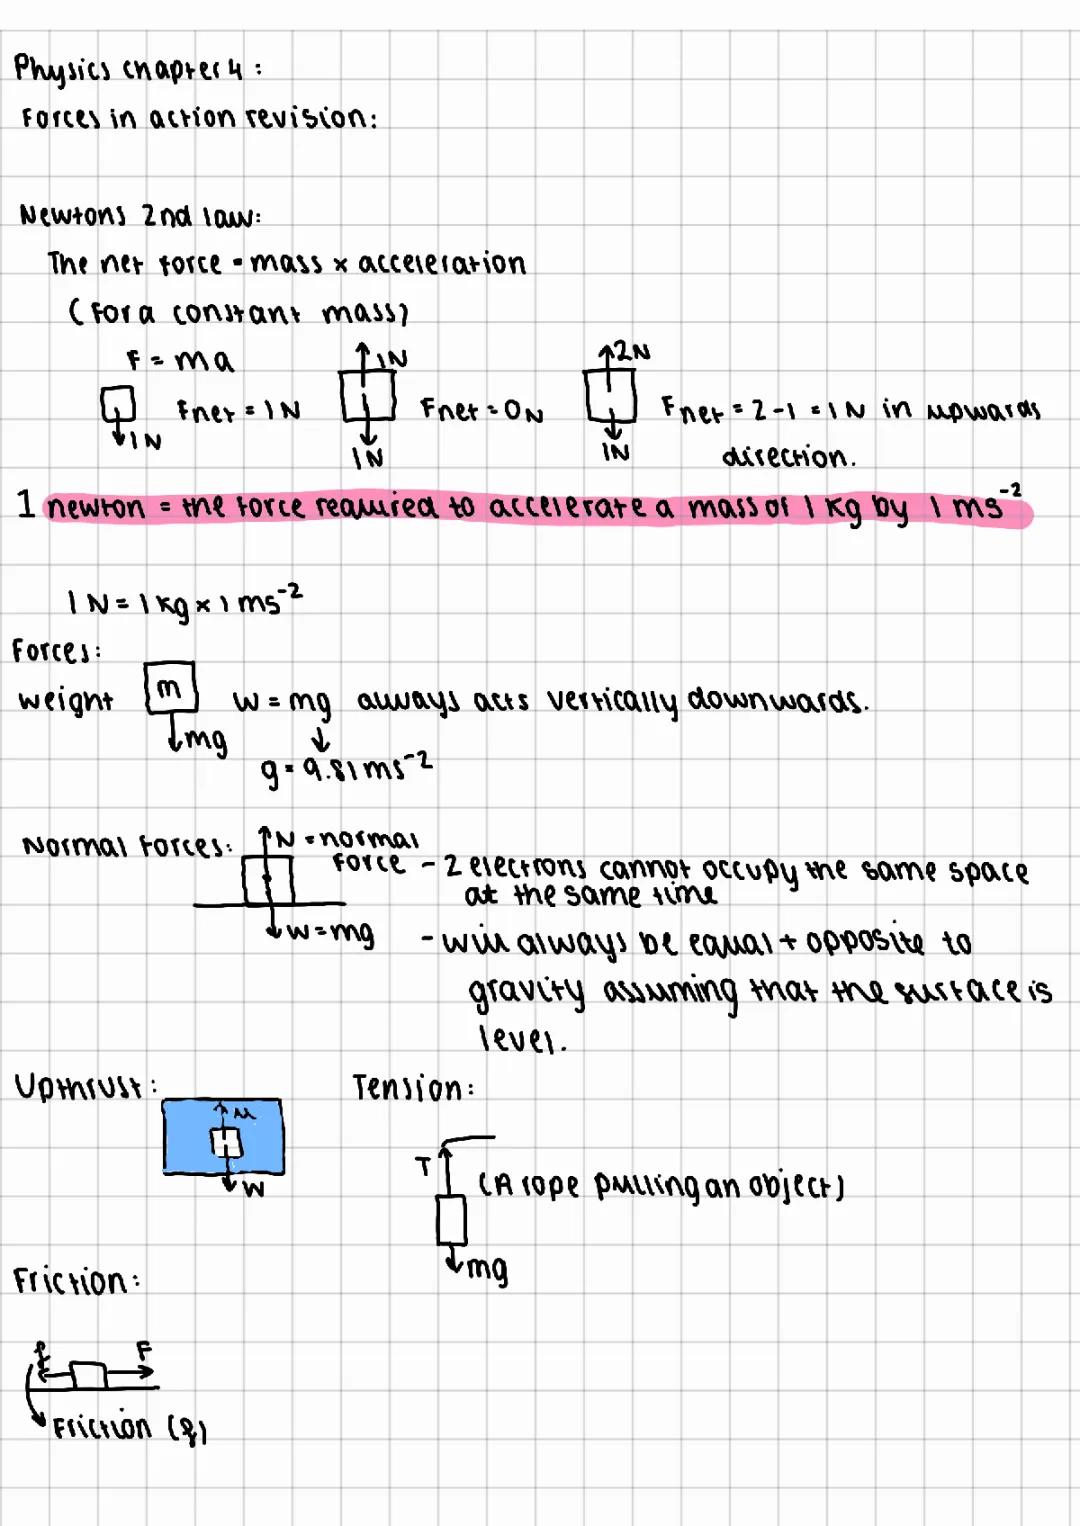 Physics chapter 4 :
Forces in action revision:
Newtons 2nd law:
The net force = mass x acceleration
(For a constant mass)
F = ma
1N
Fnet = 1N
1N
1N
Fnet = 0N
2N
1N
Fnet = 2-1 = 1N in upwards
direction.
1 newton = the force required to accelerate a mass of 1 kg by 1 ms⁻²
1 N = 1 kg x 1 ms⁻²
Forces:
weight
m
mg
w = mg always acts vertically downwards.
g = 9.81 ms⁻²
Normal forces:
N = normal
force
- 2 electrons cannot occupy the same space
at the same time
w = mg
- will always be equal + opposite to
gravity assuming that the surface is
level.
Upthrust :
u
w
Tension :
T
(A rope pulling an object)
mg
Friction :
f
F
Friction (f)